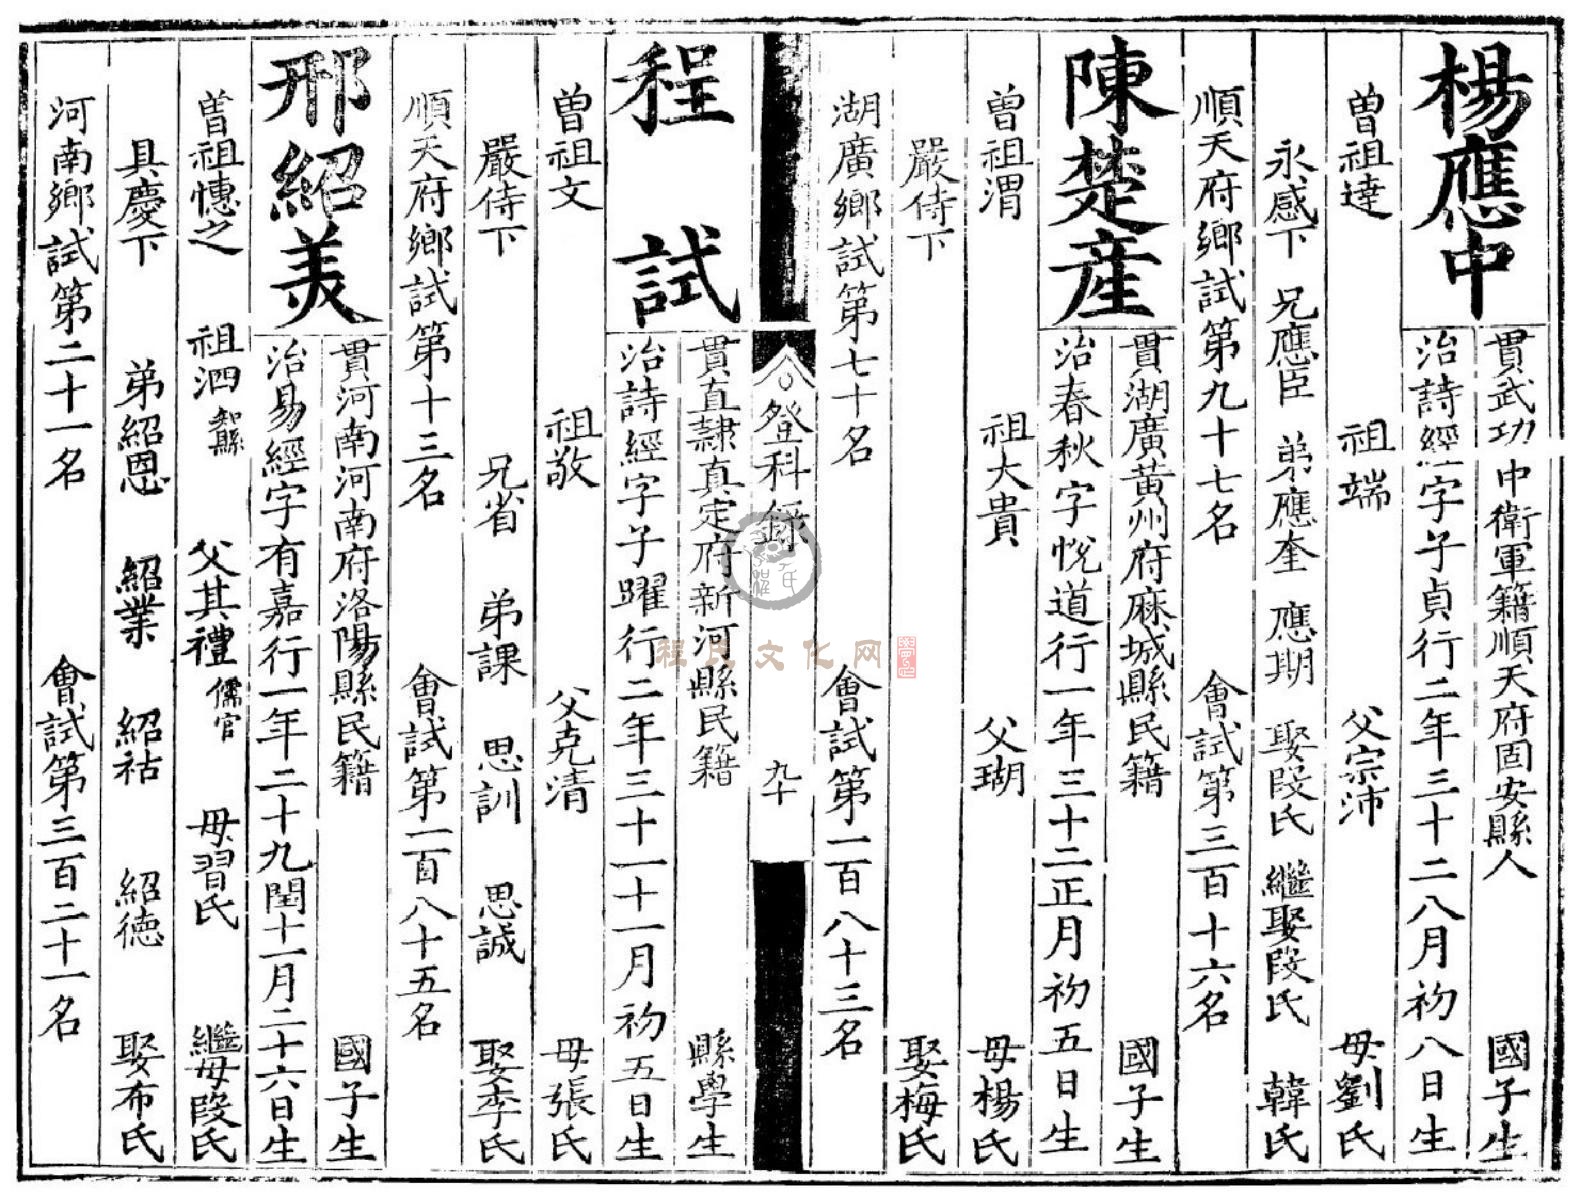 楊應中
貫武功中衛軍籍順天府固安縣人 國子生
治詩經字子貞行二年三十二八月初八日生
曾祖達 祖端 父宗沛 母劉氏
永感下 兄應臣 弟應奎 應期 娶段氏 繼娶段氏 韓氏
順天府鄉試第九十七名 會試第三百十六名
陳楚產
貫湖廣黃州府麻城縣民籍 國子生
治春秋字悅道行一年三十二正月初五日生
曾祖渭 祖大貴 父瑚 母楊氏
嚴侍下 娶梅氏
湖廣鄉試第七十名 會試第一百八十三名
登科錄 九十
程試
貫直隸真定府新河縣民籍 縣學生
治詩經字子躍行二年三十一十一月初五日生
曾祖文 祖敬 父克清 母張氏
嚴侍下 兄省 弟課 思訓 思誠 娶李氏
順天府鄉試第十三名 會試第二百八十五名
邢紹美
貫河南河南府洛陽縣民籍 國子生
治易經字有嘉行一年二十九閏十一月二十六日生
曾祖憓之 祖泗知縣 父其禮儒官 母習氏 繼母段氏
具慶下 弟紹恩 紹業 紹祜 紹德 娶布氏
河南鄉試第二十一名 會試第三百二十一名
程氏文化网